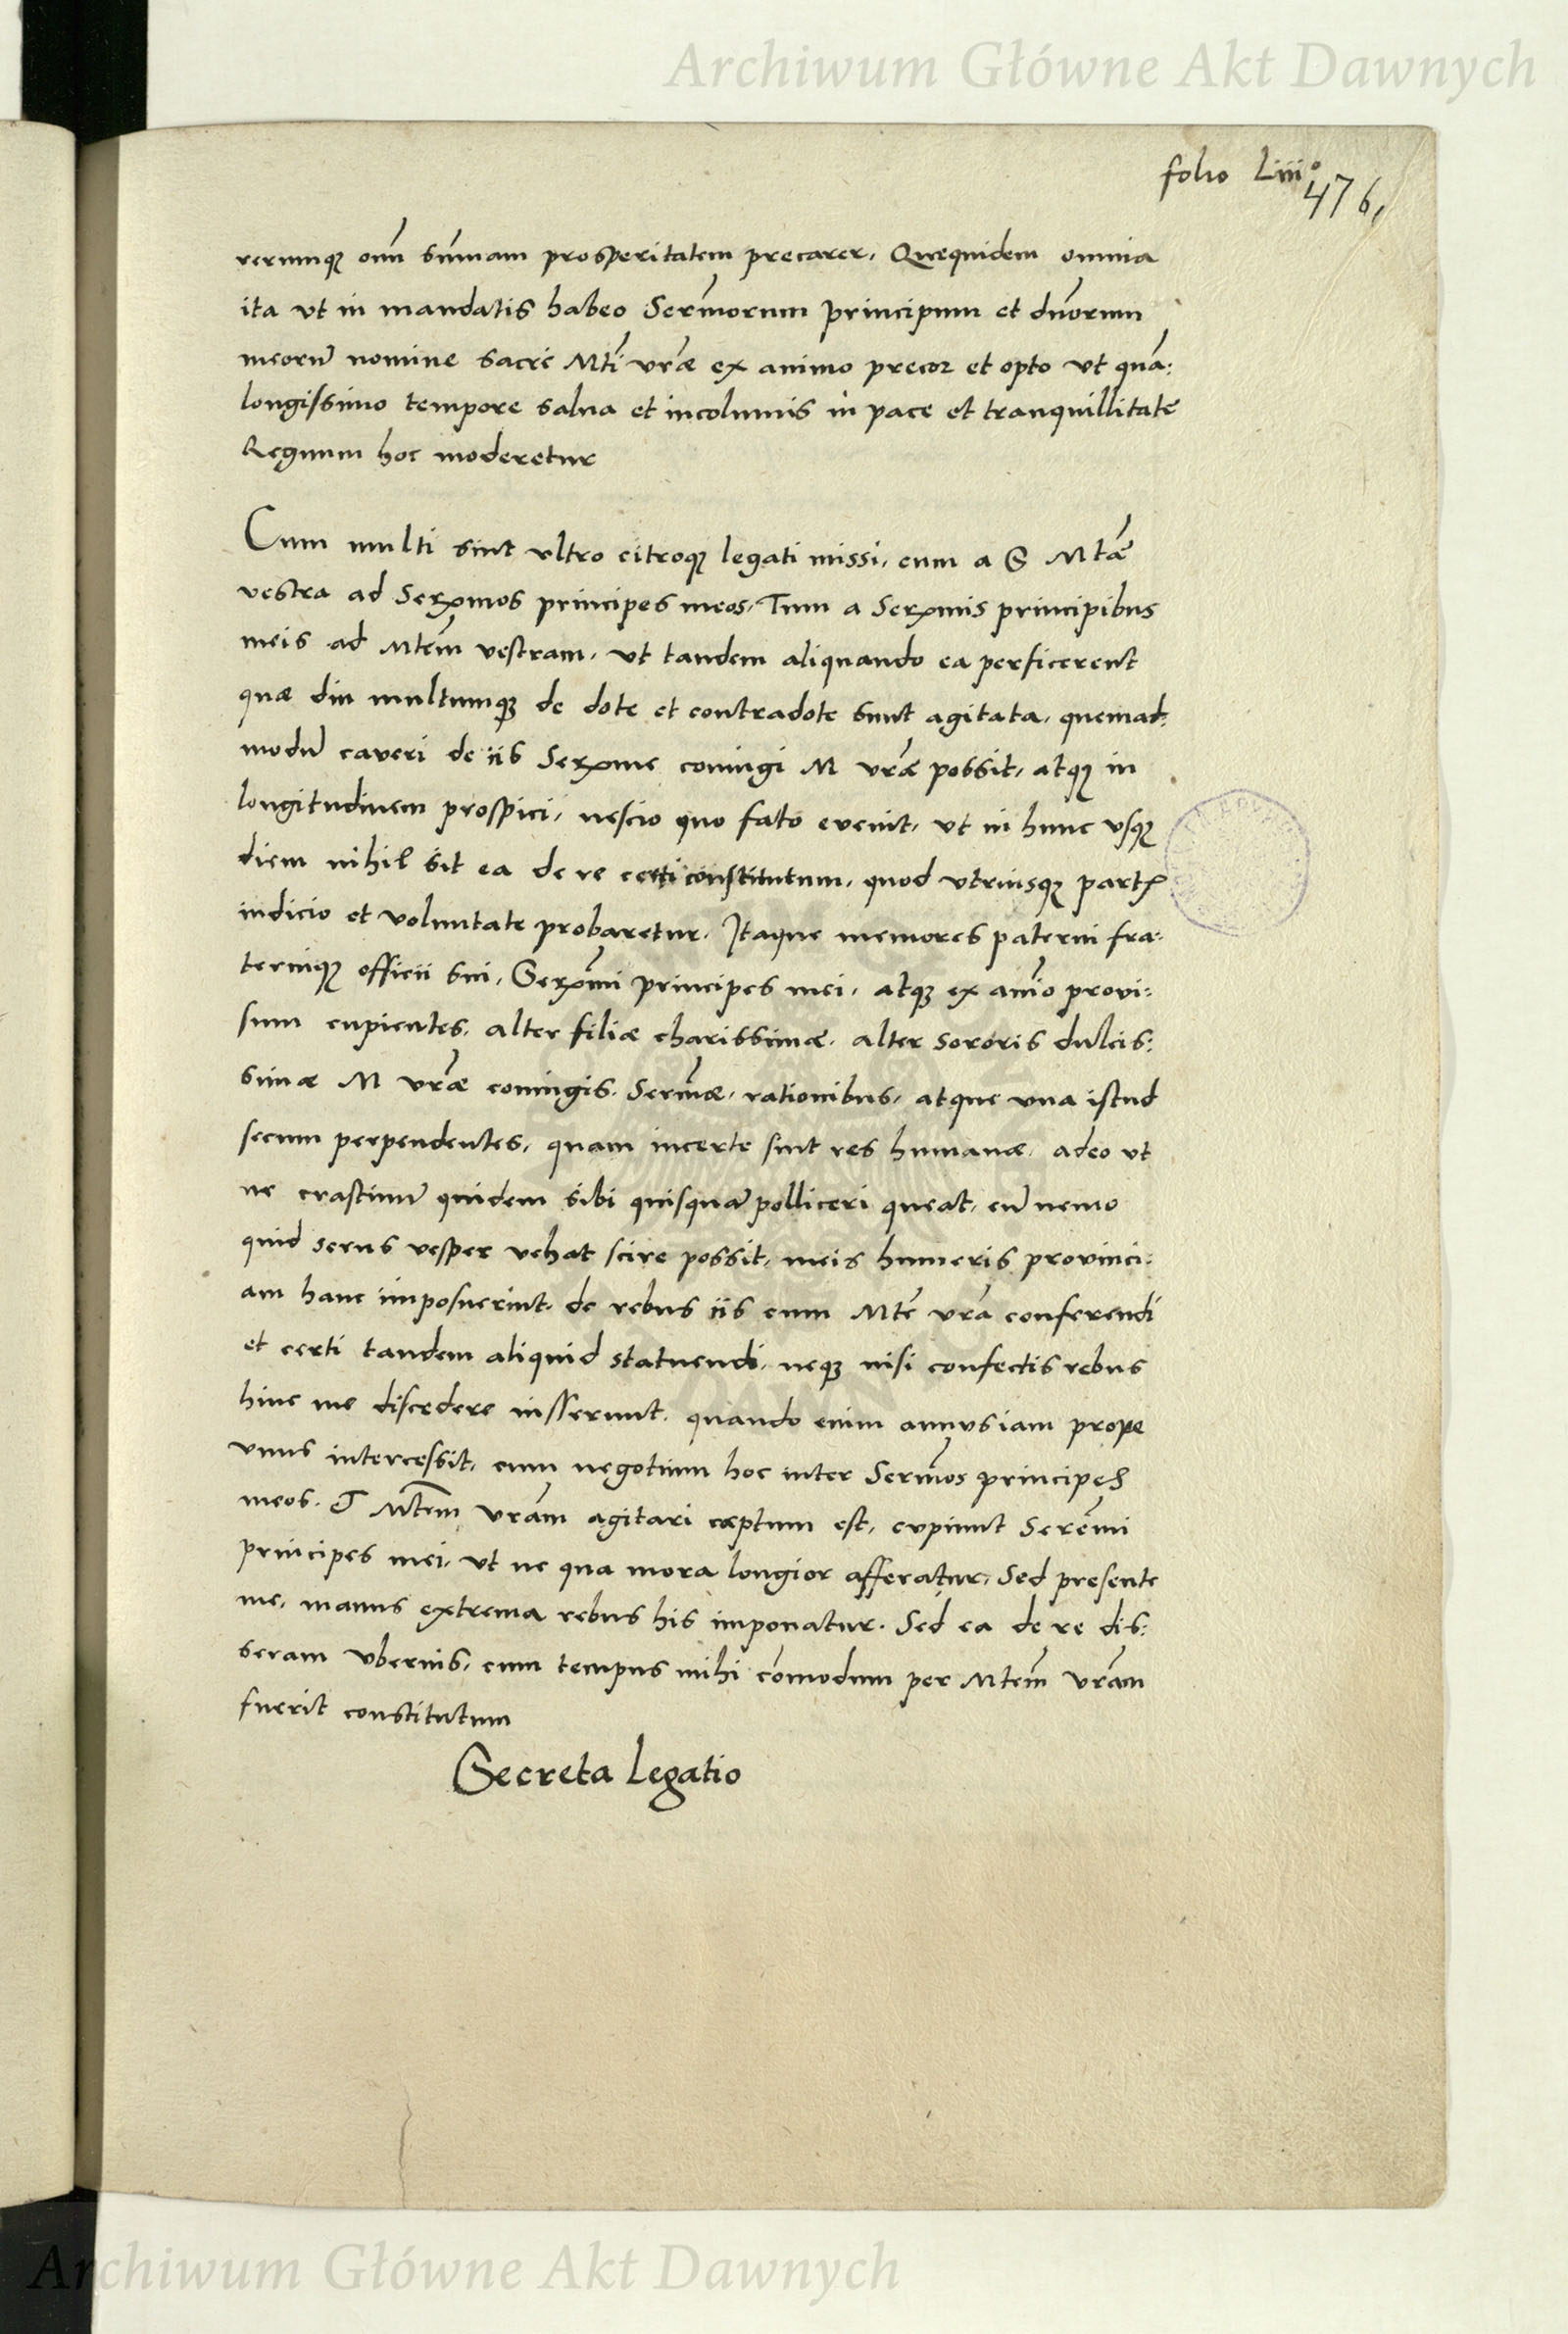 Archiwum Główne Akt Dawnych
folio Liii°
476,
rerumqꝫ om̃ sum̃am prosperitatem precarer. Quequidem omnia
ita vt in mandatis habeo Ser̃morum principum et dn̄orum
meorū nomine sacre Mti vrae ex animo precor et opto vt quā:
longissimo tempore salua et incolumis in pace et tranquillitatē
Regnum hoc moderetur
Cum multi sint vltro citroqꝫ legati missi, cum a S Mtae
vestra ad Serxmos principes meos. Tum a Serxmis principibus
meis ad Mtem vestram, vt tandem aliquando ea perficerent
quae diu multumqꝫ de dote et contradote sunt agitata, quemad:
modū caveri de iis Serxme coniugi M vrae possit, atqꝫ in
longitudinem prospici, nescio quo fato evenit, vt in hunc vsqꝫ
diem nihil sit ea de re certi constitutum, quod vtriusqꝫ part
iudicio et voluntate probaretur. Itaque memores paterni fra:
terniqꝫ officii sui, Serxmi principes mei, atqꝫ ex anio provi:
sum cupientes, alter filiae charissimae, alter sororis dulcis:
simae M vrae coniugis Sermae, rationibus, atque vna istud
secum perpendentes, quam incerte sint res humanae, adeo vt
ne crastinū quidem sibi quisquā polliceri queat, cū nemo
quid serus vesper vehat scire possit, meis humeris provinci:
am hanc imposuerint, de rebus iis cum Mte vra conferendi
et certi tandem aliquid statuendi, neqꝫ nisi confectis rebus
hinc me discedere iusserunt. quando enim annus iam prope
vnus intercessit, cum negotium hoc inter Sermos principes
meos. & Mtem vram agitari caeptum est, cupiunt Seremi
principes mei, vt ne qua mora longior afferatur, Sed presente
me, manus extrema rebus his imponatur. Sed ea de re dis:
seram vberius, cum tempus mihi cōmodum per Mtem vram
fuerit constitutum
Secreta Legatio
Archiwum Główne Akt Dawnych